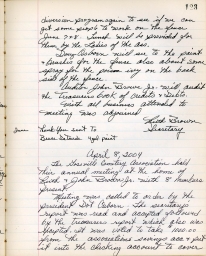 123
diversion program again to see if we can
get some people to work on the fence
June 7 & 8. Lunch will be provided for
them by the ladies of the ass.
Don Osborn will see to the paint
& brushes for the fence also about some
spray for the poison ivy on the back
side of the fence.
Auditor John Brown Jr. will audit
the treasurers book of credits & debits.
With all business attended to
meeting was adjourned.
Ruth Brown
Secretary
Thank you sent to
Bruce Estande
April 8, 2004
The Cemetery Association held
their annual meeting at the home of
Ruth & John Brown Jr. with 8 members
present.
Meeting was called to order by the
president Osborn. The secretary's
report was read and accepted followed
by the treasurers report which also was
accepted. It was voted to take 1000.00
from the associations savings acc & put
it into the checking account to cover